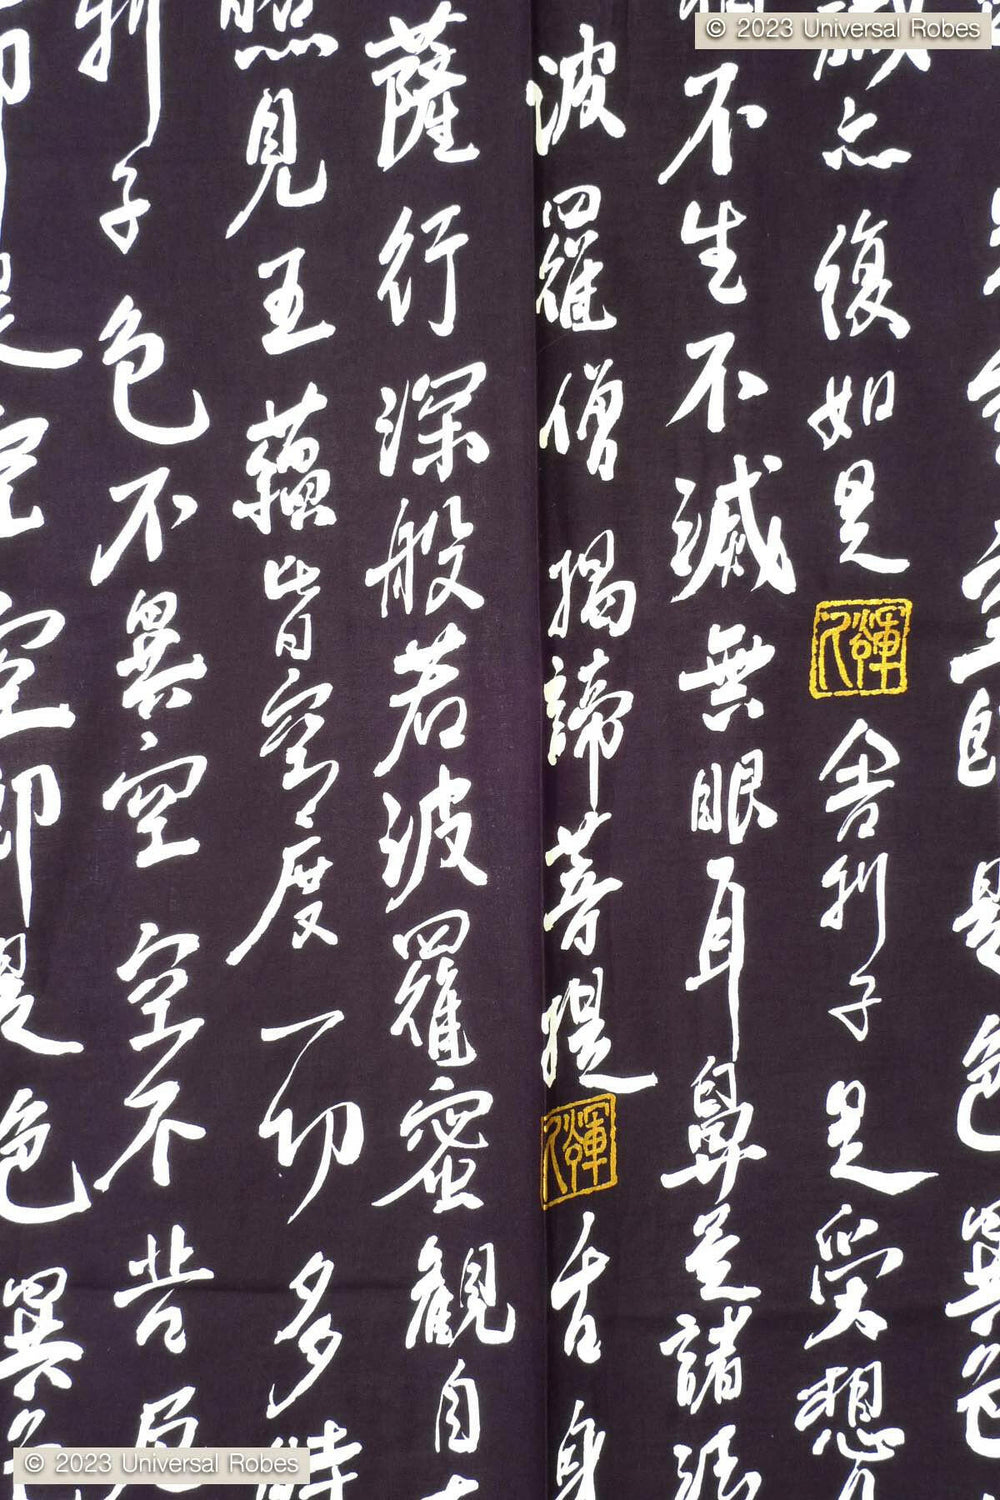 © 2023 Universal Robes
識亦復如是
舍利子是受想
不生不滅無眼耳鼻
諸法
波羅僧揭諦菩提
舌身
薩行深般若波羅蜜觀自
照見五蘊皆空度一切多時
利子色不異空空不
是空空即是色異
© 2023 Universal Robes